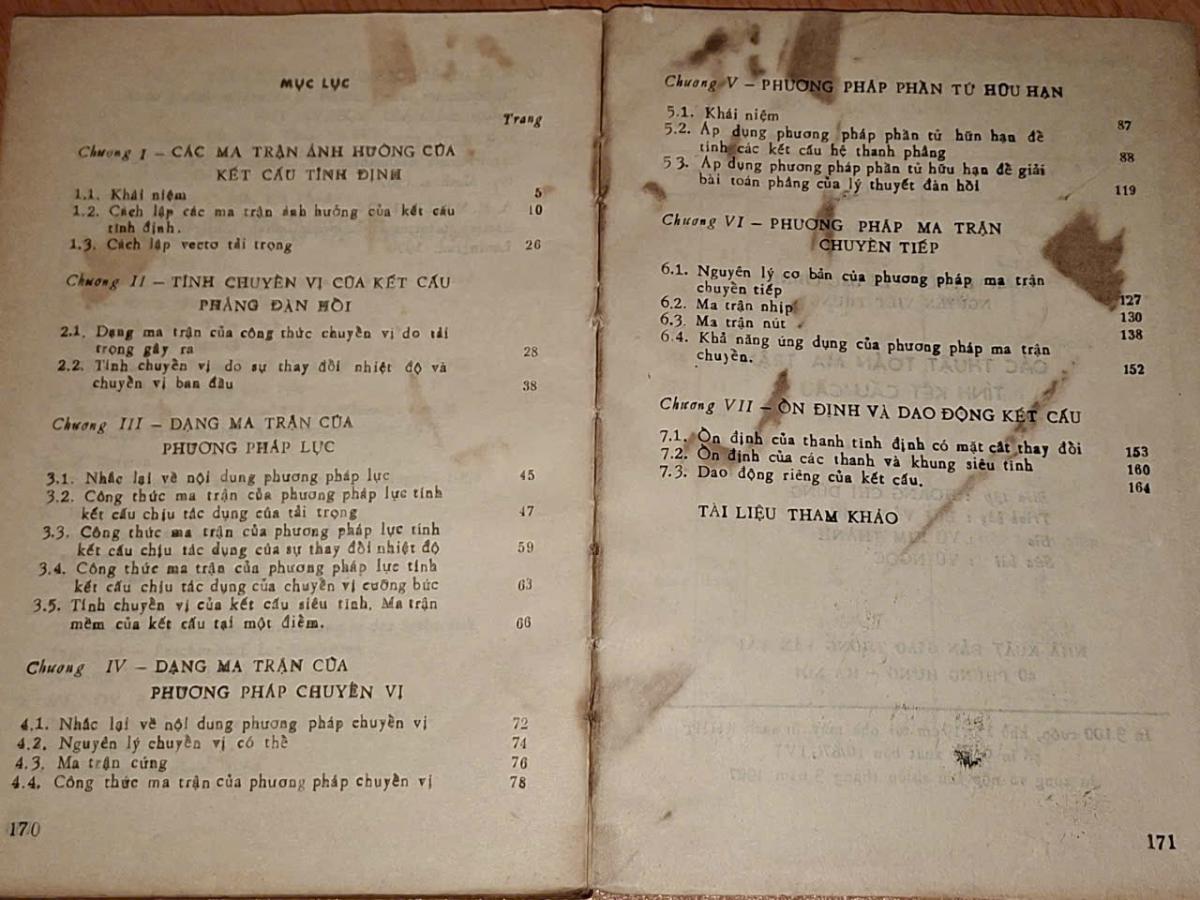 MỤC LỤC
Trang
Chương I — CÁC MA TRẬN ẢNH HƯỞNG CỦA
KẾT CẤU TĨNH ĐỊNH
1.1. Khái niệm 5
1.2. Cách lập các ma trận ảnh hưởng của kết cấu 10
tĩnh định.
1.3. Cách lập vectơ tải trọng 26
Chương II — TÍNH CHUYỂN VỊ CỦA KẾT CẤU
PHẲNG ĐÀN HỒI
2.1. Dạng ma trận của công thức chuyển vị do tải
trọng gây ra 28
2.2. Tính chuyển vị do sự thay đổi nhiệt độ và
chuyển vị ban đầu 38
Chương III — DẠNG MA TRẬN CỦA
PHƯƠNG PHÁP LỰC
3.1. Nhắc lại về nội dung phương pháp lực 45
3.2. Công thức ma trận của phương pháp lực tính
kết cấu chịu tác dụng của tải trọng 47
3.3. Công thức ma trận của phương pháp lực tính
kết cấu chịu tác dụng của sự thay đổi nhiệt độ 59
3.4. Công thức ma trận của phương pháp lực tính
kết cấu chịu tác dụng của chuyển vị cưỡng bức 63
3.5. Tính chuyển vị của kết cấu siêu tĩnh. Ma trận
mềm của kết cấu tại một điểm. 66
Chương IV — DẠNG MA TRẬN CỦA
PHƯƠNG PHÁP CHUYỂN VỊ
4.1. Nhắc lại về nội dung phương pháp chuyển vị 72
4.2. Nguyên lý chuyển vị có thể 74
4.3. Ma trận cứng 76
4.4. Công thức ma trận của phương pháp chuyển vị 78
170
Chương V — PHƯƠNG PHÁP PHẦN TỬ HỮU HẠN
5.1. Khái niệm 87
5.2. Áp dụng phương pháp phần tử hữn hạn để
tính các kết cấu hệ thanh phẳng 88
5 3. Áp dụng phương pháp phần tử hữu hạn để giải
bài toán phẳng của lý thuyết đàn hồi 119
Chương VI — PHƯƠNG PHÁP MA TRẬN
CHUYỂN TIẾP
6.1. Nguyên lý cơ bản của phương pháp ma trận
chuyển tiếp 127
6.2. Ma trận nhịp 130
6.3. Ma trận nút 138
6.4. Khả năng ứng dụng của phương pháp ma trận
chuyển. 152
Chương VII — ỔN ĐỊNH VÀ DAO ĐỘNG KẾT CẤU
7.1. Ổn định của thanh tĩnh định có mặt cắt thay đổi 153
7.2. Ổn định của các thanh và khung siêu tĩnh 160
7.3. Dao động riêng của kết cấu. 164
TÀI LIỆU THAM KHẢO
171